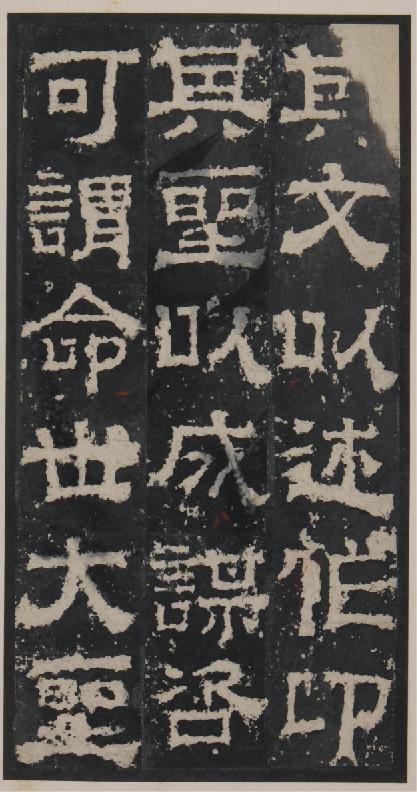 其文以述作卬
其聖以成謀咨
可謂命世大聖